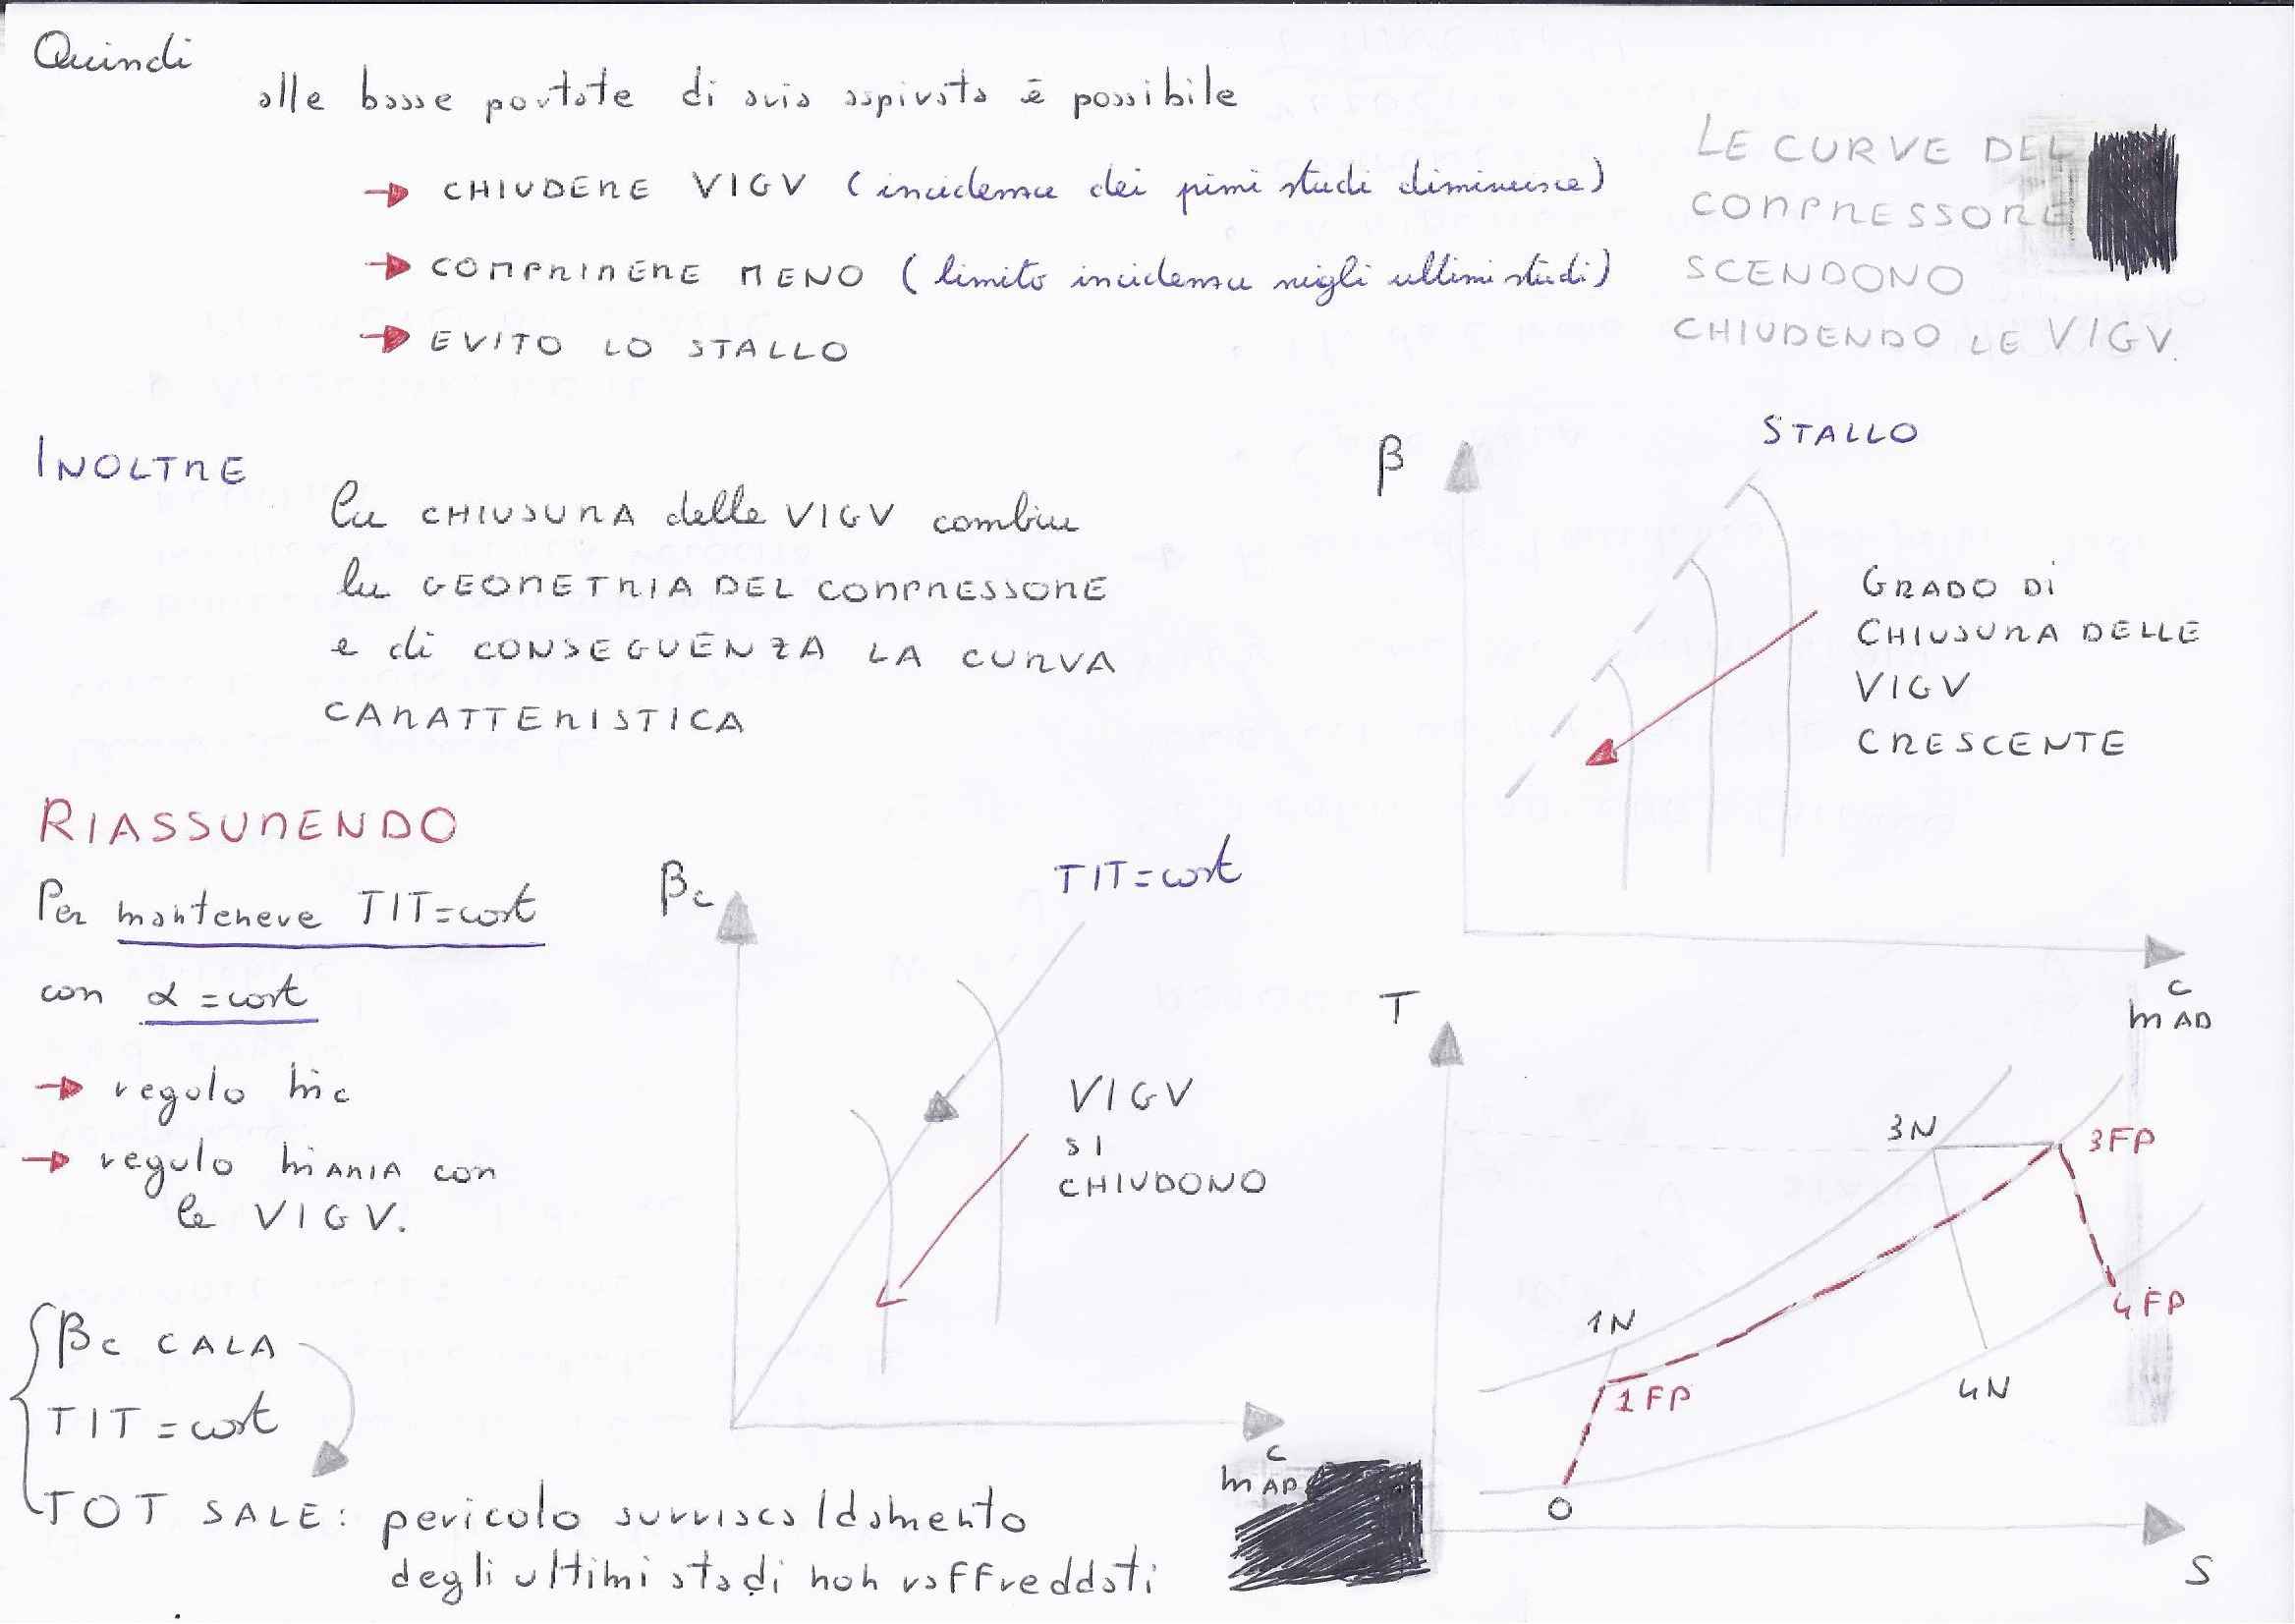 Quindi
alle basse portate di aria aspirata è possibile
→ CHIUDERE VIGV (incidenza dei primi stadi diminuisce)
→ COMPRIMERE MENO (limito incidenza negli ultimi stadi)
→ EVITO LO STALLO
LE CURVE DEL
COMPRESSORE
SCENDONO
CHIUDENDO LE VIGV.
INOLTRE
la CHIUSURA delle VIGV cambia
la GEOMETRIA DEL COMPRESSORE
e di CONSEGUENZA LA CURVA
CARATTERISTICA
β
STALLO
GRADO DI
CHIUSURA DELLE
VIGV
CRESCENTE
ṁ AD C
RIASSUMENDO
Per mantenere TIT=cost
con α=cost
→ regolo ṁc
→ regolo ṁ ARIA con
le VIGV.
βc
TIT=cost
VIGV
SI
CHIUDONO
ṁ AD C
βc CALA
TIT=cost
TOT SALE: pericolo surriscaldamento
degli ultimi stadi non raffreddati
T
3N
3FP
1N
1FP
4FP
4N
O
S